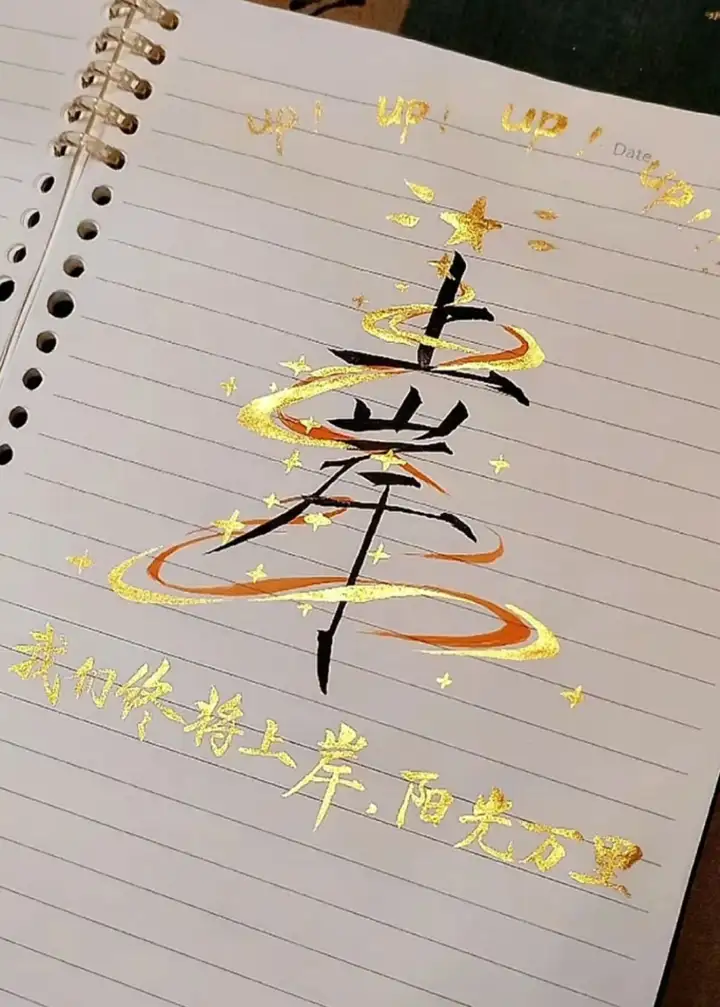 up! up! up! up!
Date
上岸
我们终将上岸、阳光万里